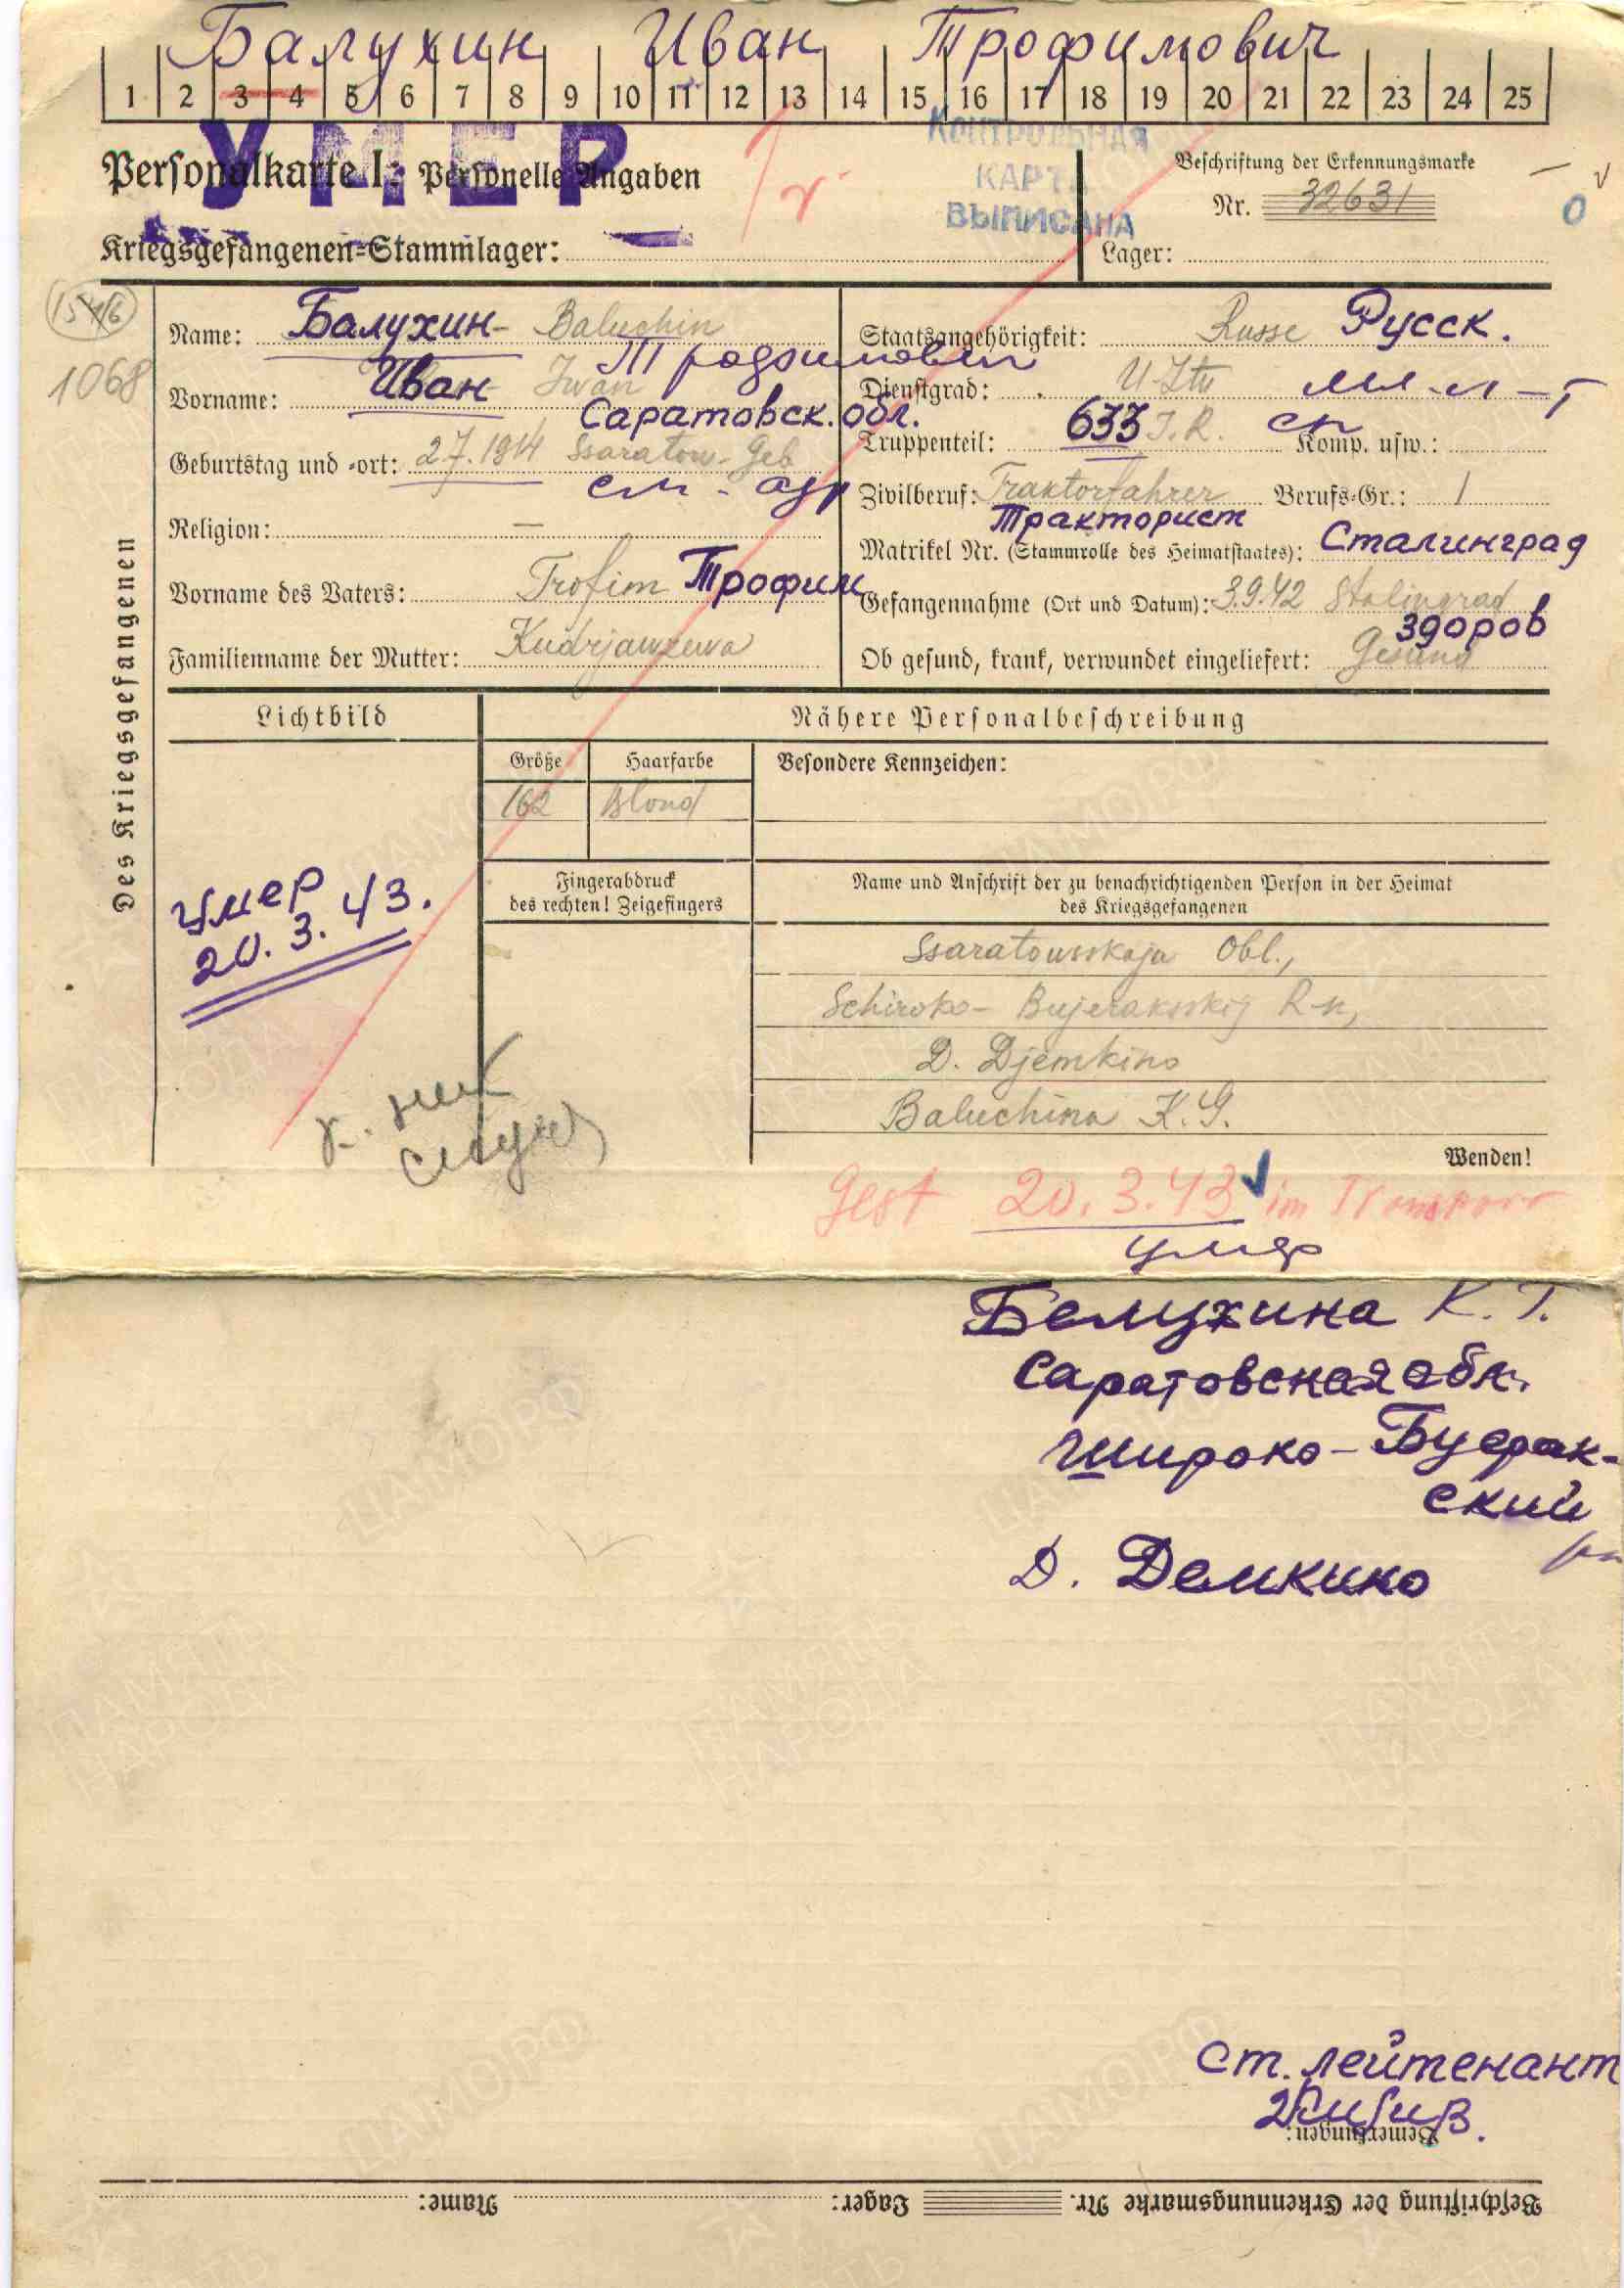 Балухин Иван Трофимович
1 2 3 4 5 6 7 8 9 10 11 12 13 14 15 16 17 18 19 20 21 22 23 24 25
УМЕР
КОНТРОЛЬНАЯ
КАРТА
ВЫПИСАНА
Personalkarte I: Personelle Angaben
Beschriftung der Erkennungsmarke
Nr. 32631
Kriegsgefangenen-Stammlager:
Lager:
1068
Des Kriegsgefangenen
Name: Балухин- Baluchin
Трофимович
Vorname: Иван Iwan
Саратовск. обл.
Geburtstag und -ort: 27.1914 Ssaratow-Geb
см-адр
Religion: —
Vorname des Vaters: Trofim Трофим
Familienname der Mutter: Kudrjawzewa
Staatsangehörigkeit: Russe Русск.
Dienstgrad: U-Ltn мл-л-т
Truppenteil: 633 I.R. сп Komp. usw.:
Zivilberuf: Traktorfahrer Berufs-Gr.: 1
Тракторист
Matrikel Nr. (Stammrolle des Heimatstaates): Сталинград
Gefangennahme (Ort und Datum): 3.9.42 Stalingrad
здоров
Ob gesund, krank, verwundet eingeliefert: Gesund
Lichtbild
Nähere Personalbeschreibung
Größe
Haarfarbe
Besondere Kennzeichen:
162
Blond
Fingerabdruck
des rechten! Zeigefingers
Name und Anschrift der zu benachrichtigenden Person in der Heimat
des Kriegsgefangenen
умер
20.3.43.
Ssaratowskaja Obl.,
Schiroko- Bujerakskij R-n,
D. Djemkino
Baluchina K.G.
Wenden!
Gest 20.3.43 im Transport
умер
Белухина К. Г.
Саратовская обл.
Широко-Буерак-
ский
рн
Д. Демкино
ст. лейтенант
Bemerkungen:
Beschriftung der Erkennungsmarke Nr. Lager: Name: